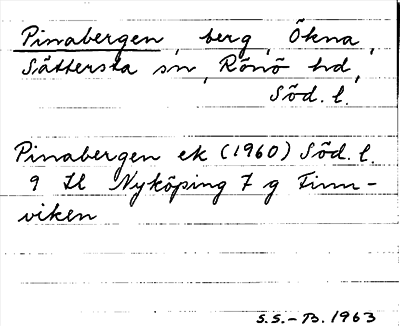 Pinabergen, berg, Ökna,
Sättersta sn, Rönö hd,
Söd. l.
Pinabergen ek (1960) Söd. l.
9 H Nyköping 7 g Finn-
viken
S.S.-B. 1963